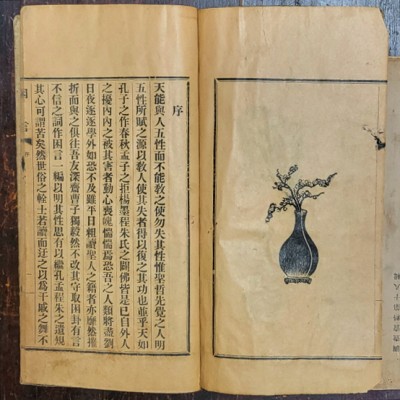 序
天能與人五性而不能教之使勿失其性惟聖哲先覺之人明
五性所賦之源以教人使其失者得以復之其功也並乎天如
孔子之作春秋孟子之拒楊墨程朱氏之闢佛皆是已自外人
之擾內內之被其害者動心喪魄惴惴焉恐吾之人類將盡劉
日夜逐逐學外如恐不及雖平日粗讀聖人之籍者亦靡然摧
折而與之俱往吾友深齋曹子獨毅然不改其守取困卦有言
不信之詞作困言一編以明其性思有以繼孔孟程朱之遺規
其心可謂苦矣然世俗之輇士若讀而迂之以爲干戚之舞不
困言